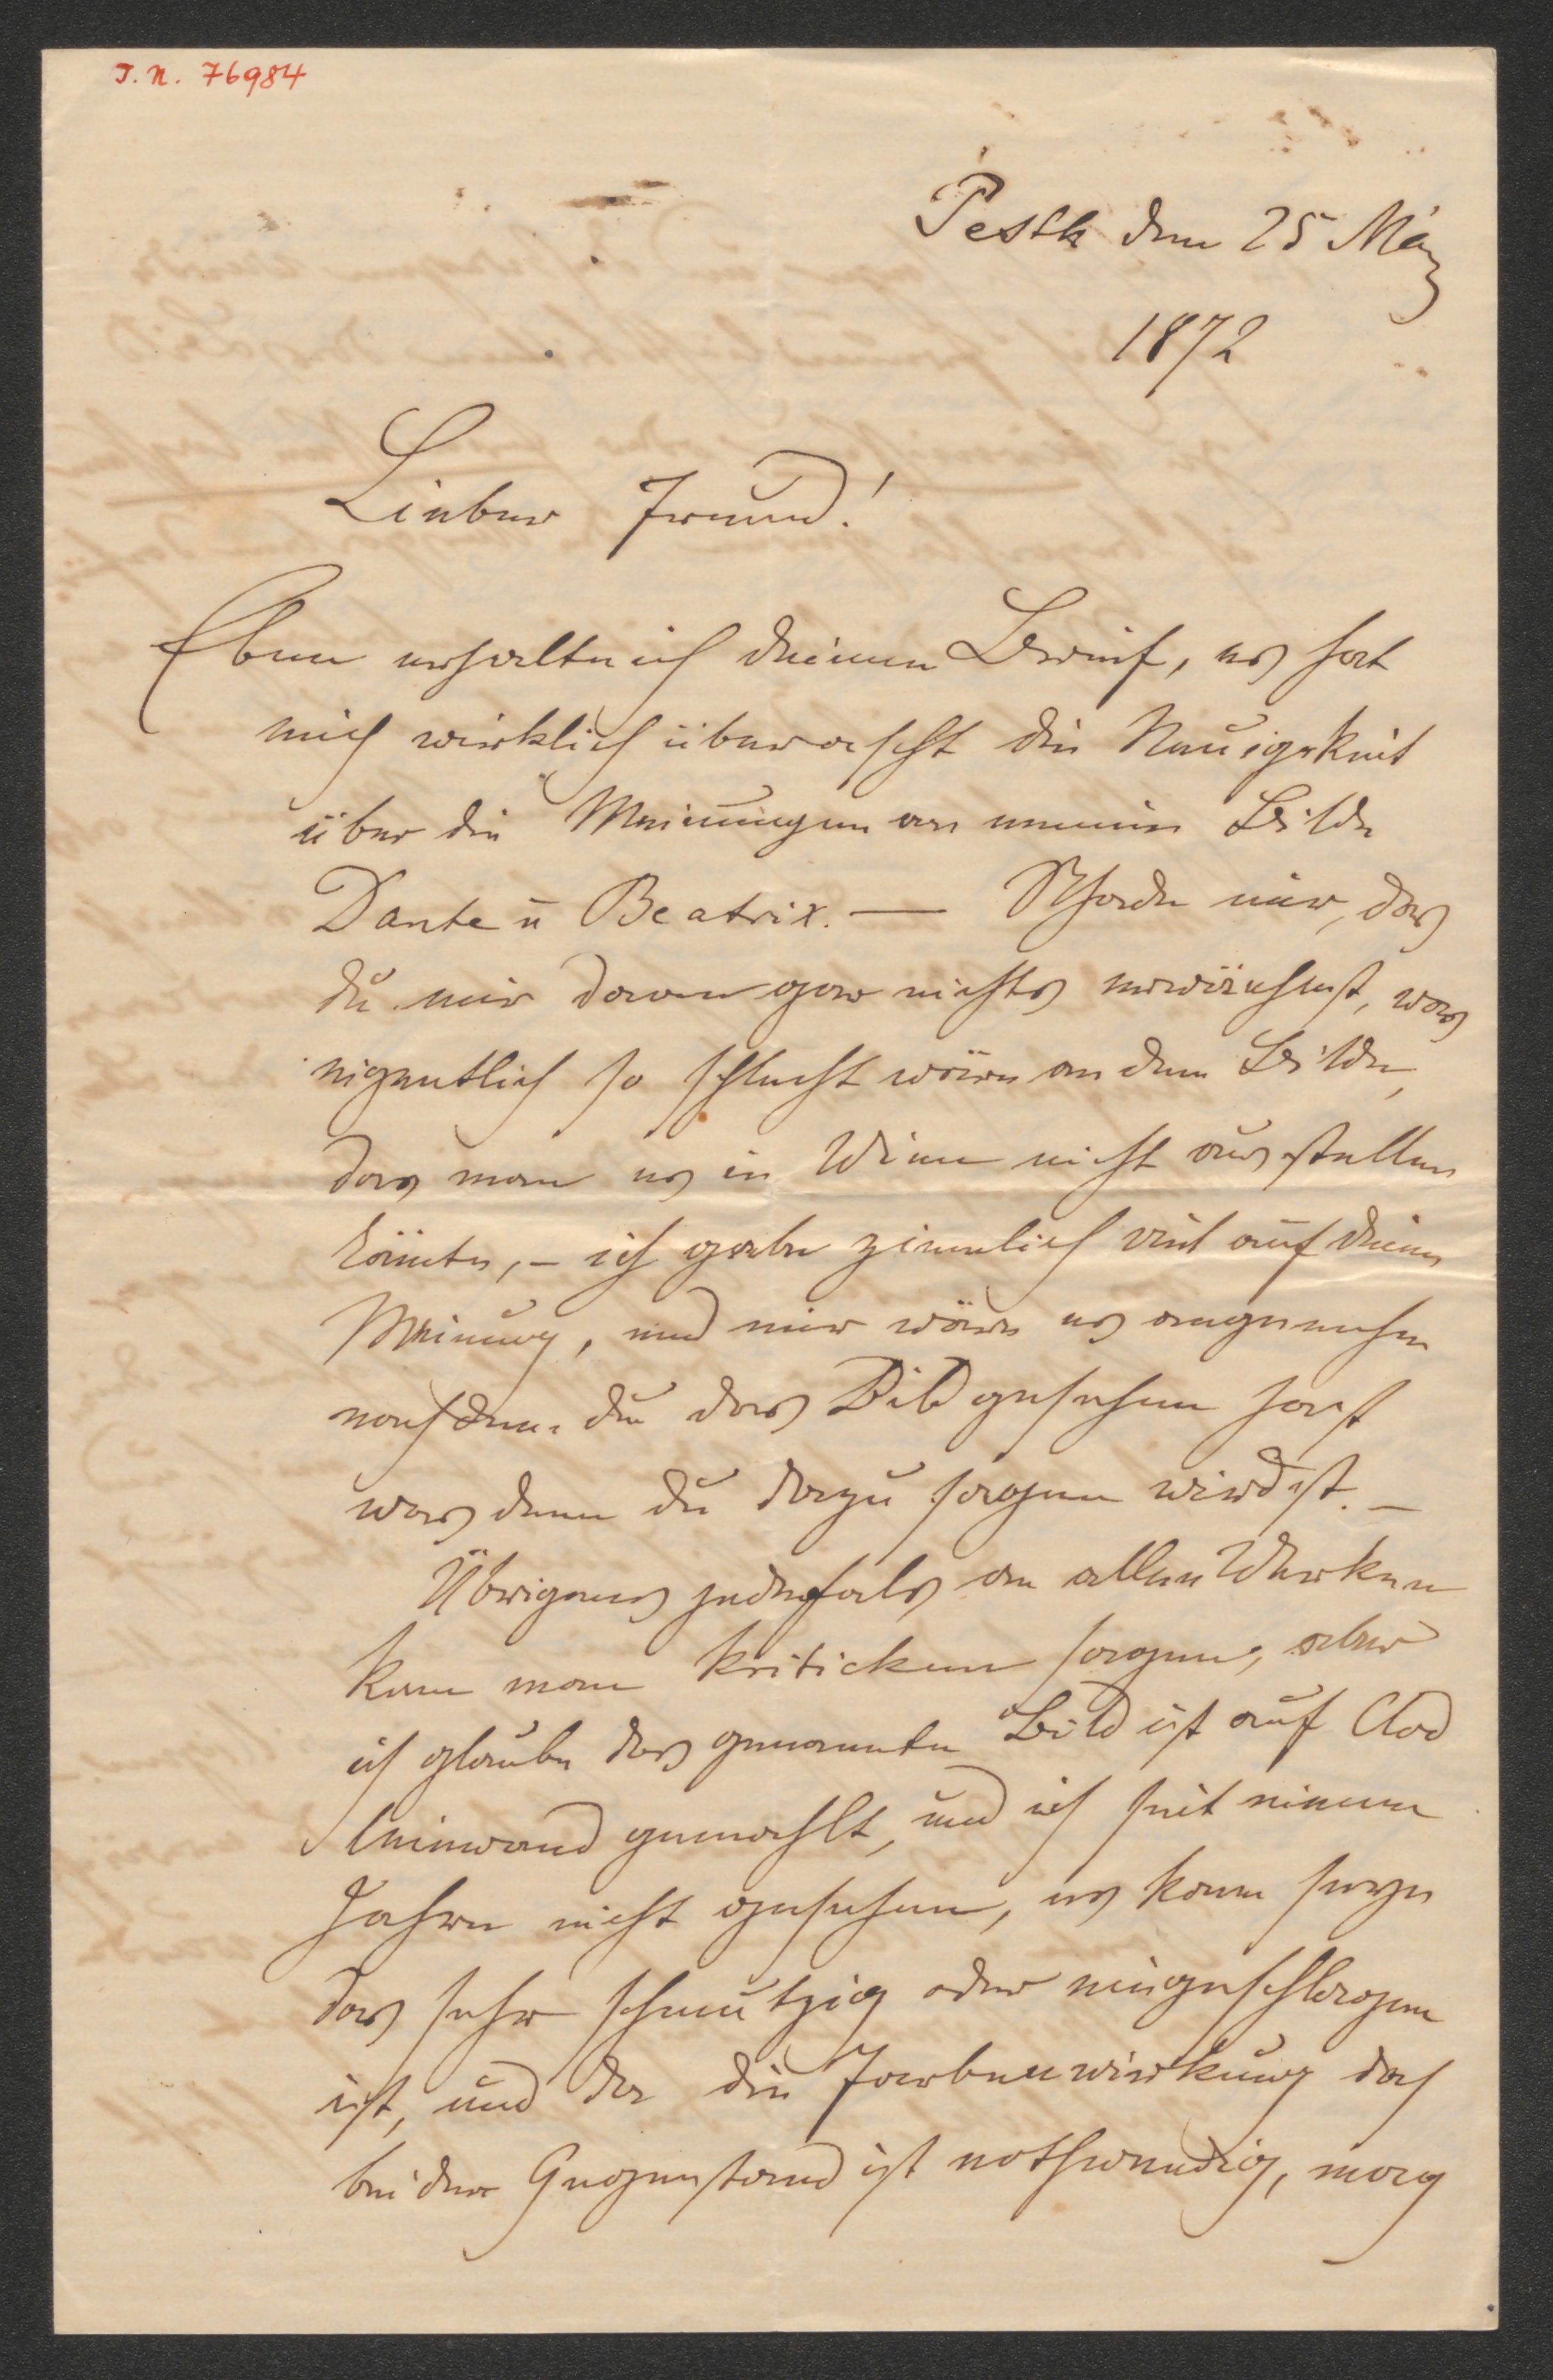 I. N. 76984
Pesth den 25 März
1872
Lieber Freund!
Eben erhalte ich deinen Brief, es hat
mich wirklich überascht die Neuigekeit
über die Meinungen an meinen Bilde
Dante ū Beatrix. — Schade nur, das
du mir davon gar nichts erwähnest, was
eigentlich so schlecht wäre an dem Bilde,
das man es in Wien nicht ausstellen
könte, – ich gebe ziemlich viel auf deine
Meinung, und mir wäre es angenehm
nachdem du das Bild gesehen hast
was denn du dazu sagen wirdst. –
Übrigens jedenfals an allen Werken
kan man kriticken sagen, aber
ich glaube das genannte Bild ist auf
leinwand gemahlt, und ich seit einem
Jahre nicht gesehen, es kann seyn
das sehr schmutzig oder eingeschlagen
ist, und da die Farbenwirkung das
bei der Gegenstand ist nothwendig, mag